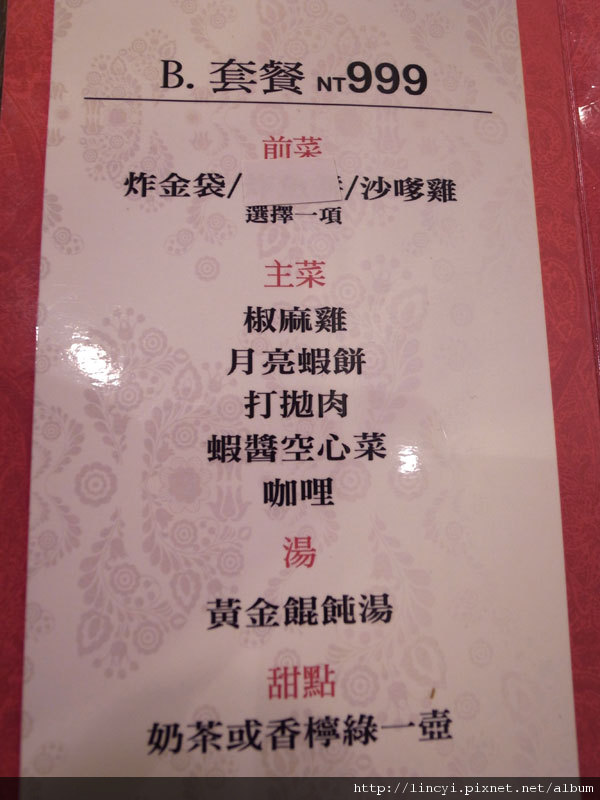 B. 套餐 NT999
前菜
炸金袋/ /沙嗲雞
選擇一項
主菜
椒麻雞
月亮蝦餅
打拋肉
蝦醬空心菜
咖哩
湯
黃金餛飩湯
甜點
奶茶或香檸綠一壺
http://lincyi.pixnet.net/album